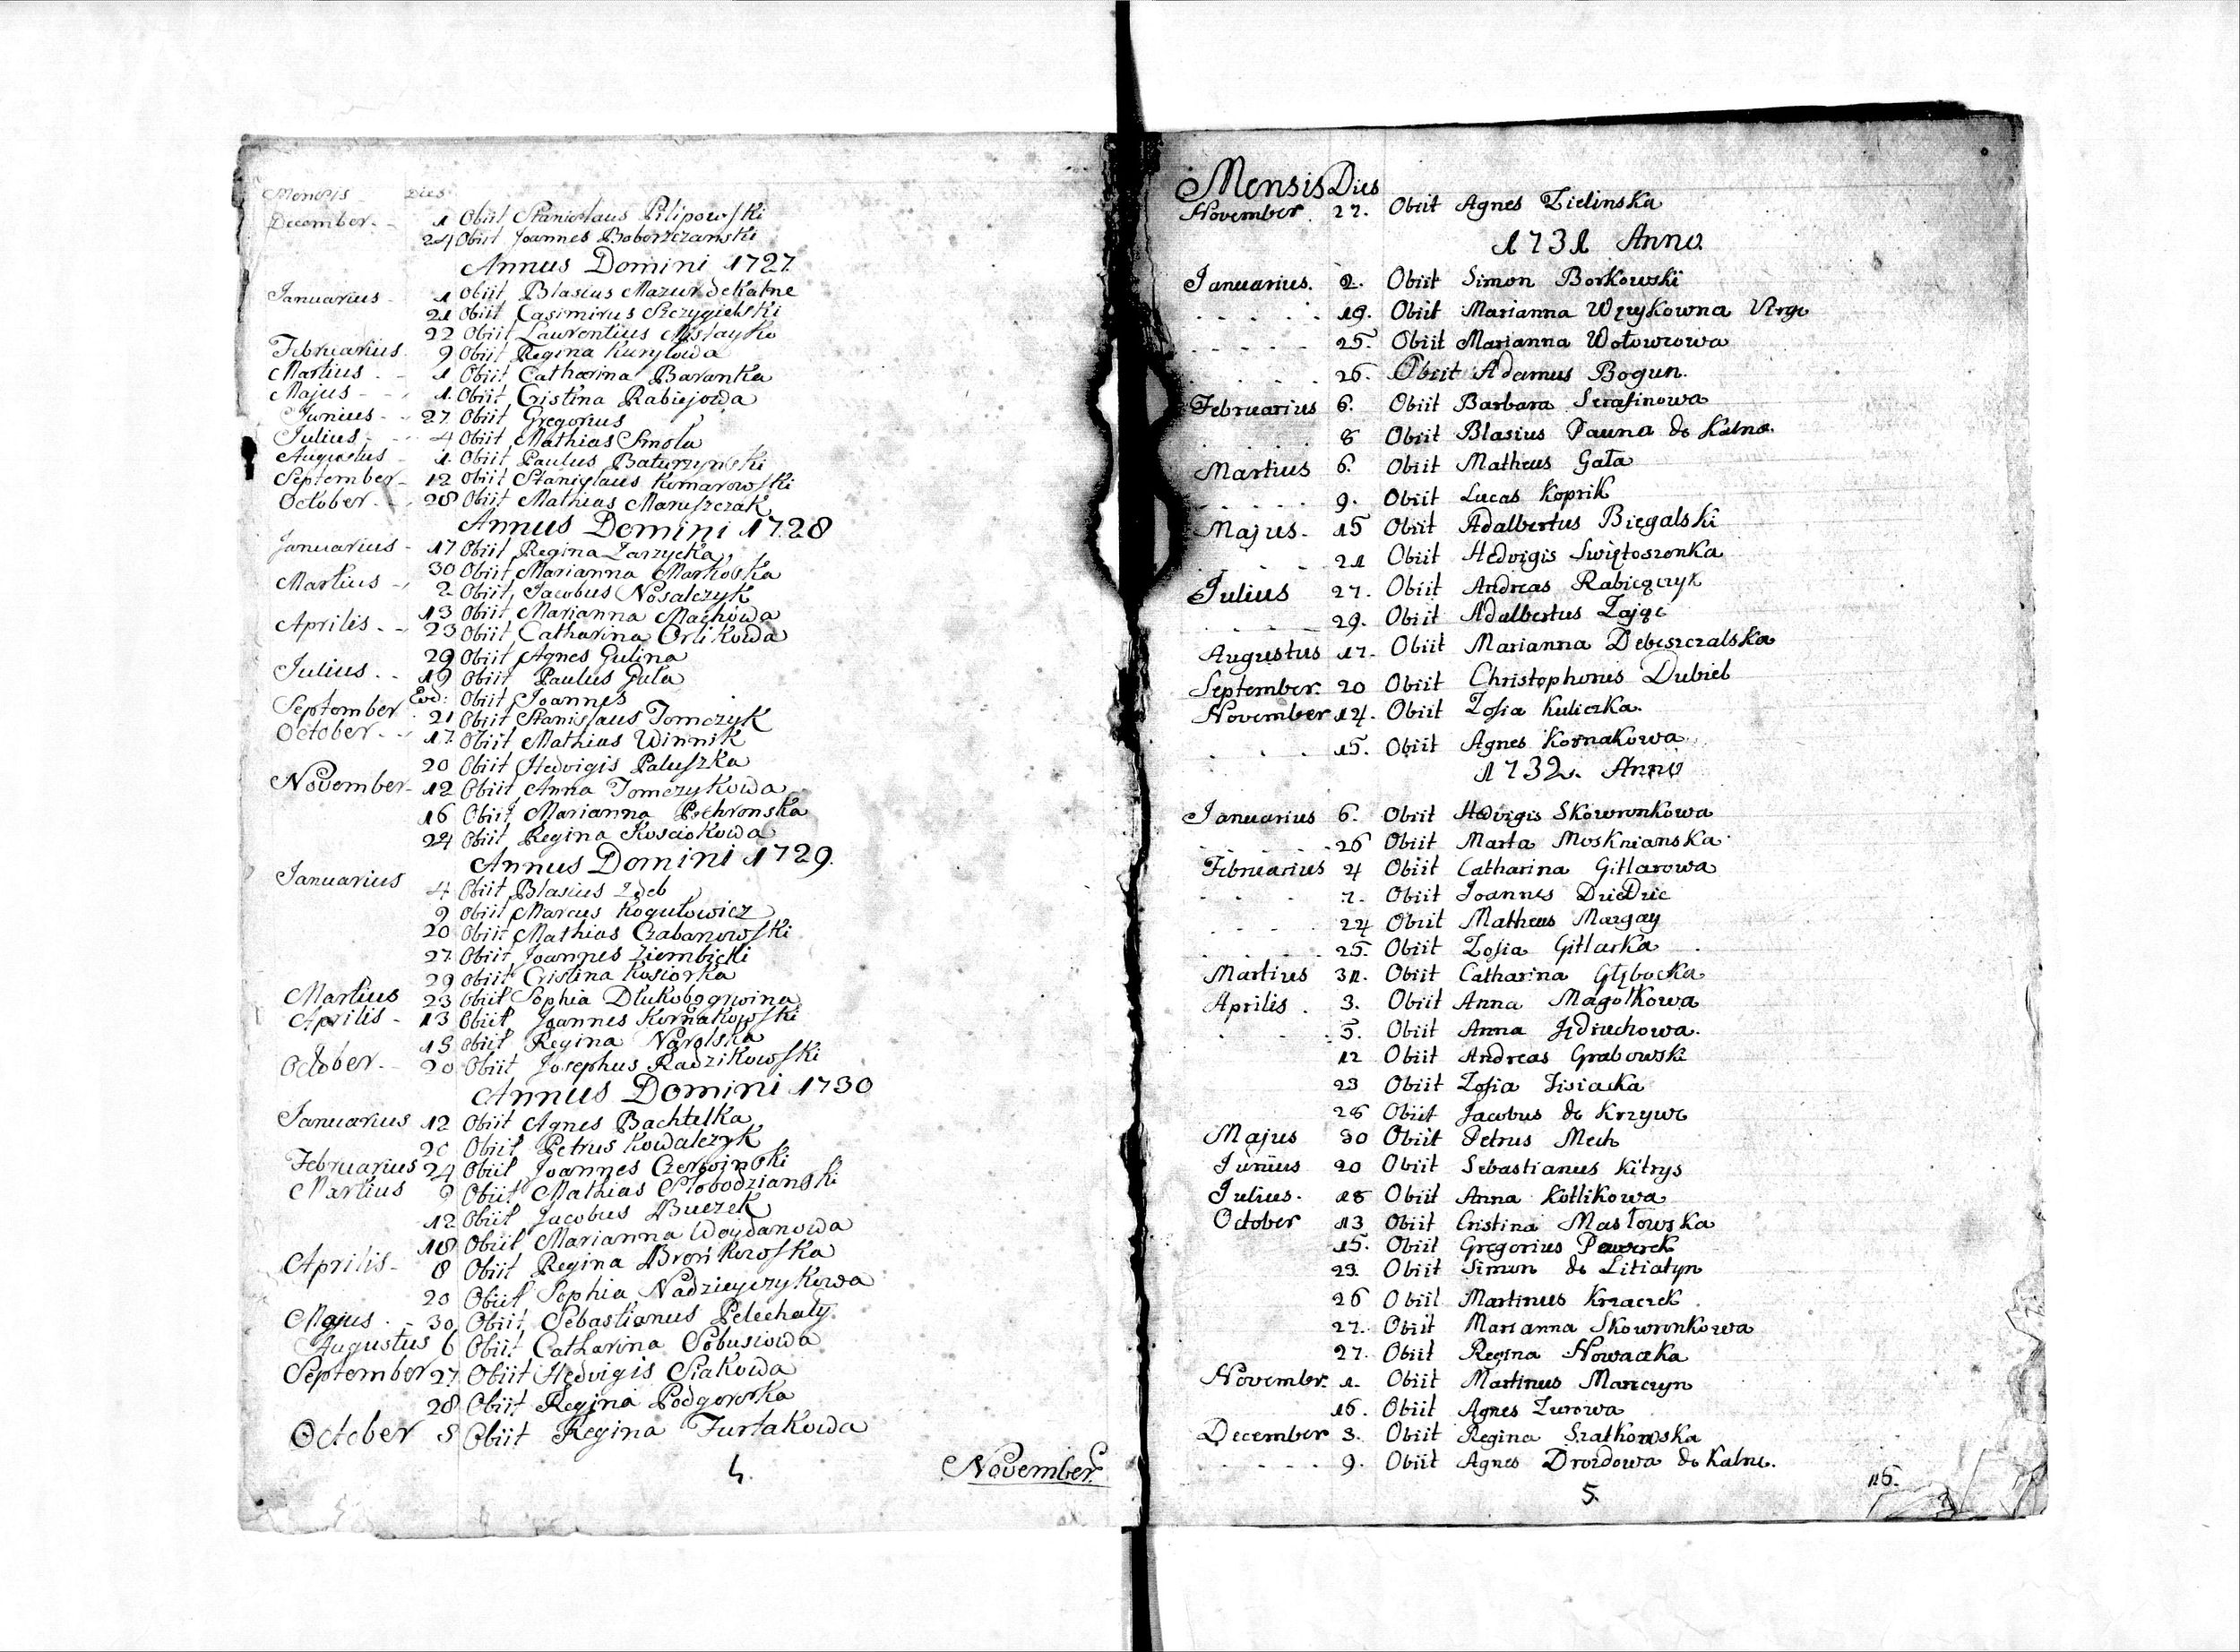 Mensis Dies
December - 1 Obiit Stanislaus Pilipowski
24 Obiit Joannes Boborzczanski
Annus Domini 1727
Januarius - 1 Obiit Blasius Mazur de Kalne
21 Obiit Casimirus Szczygielski
22 Obiit Laurentius
Februarius 9 Obiit Regina Kurylowa
Martius - 1 Obiit Catharina Baranka
Majus - 1 Obiit Cristina Rabiejowa
Junius - 27 Obiit Gregorius
Julius - 4 Obiit Mathias Smola
Augustus - 1 Obiit Paulus Baturzynski
September - 12 Obiit Stanislaus Komarowski
October - 28 Obiit Mathias Maruszczak
Annus Domini 1728
Januarius - 17 Obiit Regina Zarzycka
30 Obiit Marianna Markoska
Martius - 2 Obiit Jacobus Nosalczyk
13 Obiit Marianna Machowa
Aprilis - 23 Obiit Catharina Orlikowa
29 Obiit Agnes Gulina
Julius - 19 Obiit Paulus Gula
Eod: Obiit Joannes
September 21 Obiit Stanislaus Tomczyk
October - 17 Obiit Mathias Winnik
20 Obiit Hedvigis Paluszka
November - 12 Obiit Anna Tomczykowa
16 Obiit Marianna Pochronska
24 Obiit Regina Kosciokowa
Annus Domini 1729.
Januarius 4 Obiit Blasius Zdeb
9 Obiit Marcus Kogutowicz
20 Obiit Mathias Czabanowski
27 Obiit Joannes Ziembicki
29 Obiit Cristina Kosiorka
Martius 23 Obiit Sophia
Aprilis - 13 Obiit Joannes Kornakowski
15 Obiit Regina Narolska
October - 20 Obiit Josephus Radzikowski
Annus Domini 1730
Januarius 12 Obiit Agnes Bachtelka
20 Obiit Petrus Kowalczyk
Februarius 24 Obiit Joannes Czerwinski
Martius 9 Obiit Mathias Slobodzianski
12 Obiit Jacobus Buczek
18 Obiit Marianna Woydanowa
Aprilis - 8 Obiit Regina Bronkowska
20 Obiit Sophia Nadzieyczykowa
Majus - 30 Obiit Sebastianus Pelechaty
Augustus 6 Obiit Catharina Sobusiowa
September 27 Obiit Hedvigis Siakowa
28 Obiit Regina Podgorska
October 8 Obiit Regina Furtakowa
4.
November
Mensis Dies
November 27. Obiit Agnes Zielinska
1731 Anno.
Januarius. 2. Obiit Simon Borkowski
19. Obiit Marianna Wezykowna Virgo
25. Obiit Marianna Wołowiowa
26. Obiit Adamus Bogun.
Februarius 6. Obiit Barbara Serafinowa
8 Obiit Blasius Pauna de Kalne.
Martius 6. Obiit Matheus Gała
9. Obiit Lucas Koprik
Majus. 15 Obiit Adalbertus Biegalski
21 Obiit Hedvigis Swiętoszonka
Julius 27. Obiit Andreas
29. Obiit Adalbertus Zając
Augustus 17. Obiit Marianna Debeszczalska
September. 20 Obiit Christophorus Dubiel
November 14. Obiit Zofia Kuliczka.
15. Obiit Agnes Kornakowa
1732. Anno
Januarius 6. Obiit Hedvigis Skowronkowa
26 Obiit Marta Mosknianska
Februarius 4 Obiit Catharina Gitlarowa
7. Obiit Joannes Dziedzic
24 Obiit Matheus Mazgay
25. Obiit Zofia Gitlarka
Martius 31. Obiit Catharina Głębocka
Aprilis. 3. Obiit Anna Magolkowa
5. Obiit Anna Jędruchowa.
12 Obiit Andreas Grabowski
23 Obiit Zofia Jisiacka
28 Obiit Jacobus de Krzywe
Majus 30 Obiit Petrus Mech
Junius 20 Obiit Sebastianus Kitrys
Julius. 18 Obiit Anna Kotlikowa
October 13 Obiit Cristina Masłowska
15. Obiit Gregorius
23. Obiit Simon de Litiatyn
26 Obiit Martinus Krzaczek
27. Obiit Marianna Skowronkowa
27. Obiit Regina Nowacka
Novembr. 1. Obiit Martinus Marczyn
16. Obiit Agnes Zurowa
December 3. Obiit Regina Szatkowska
9. Obiit Agnes Drozdowa de Kalne.
5.
16.